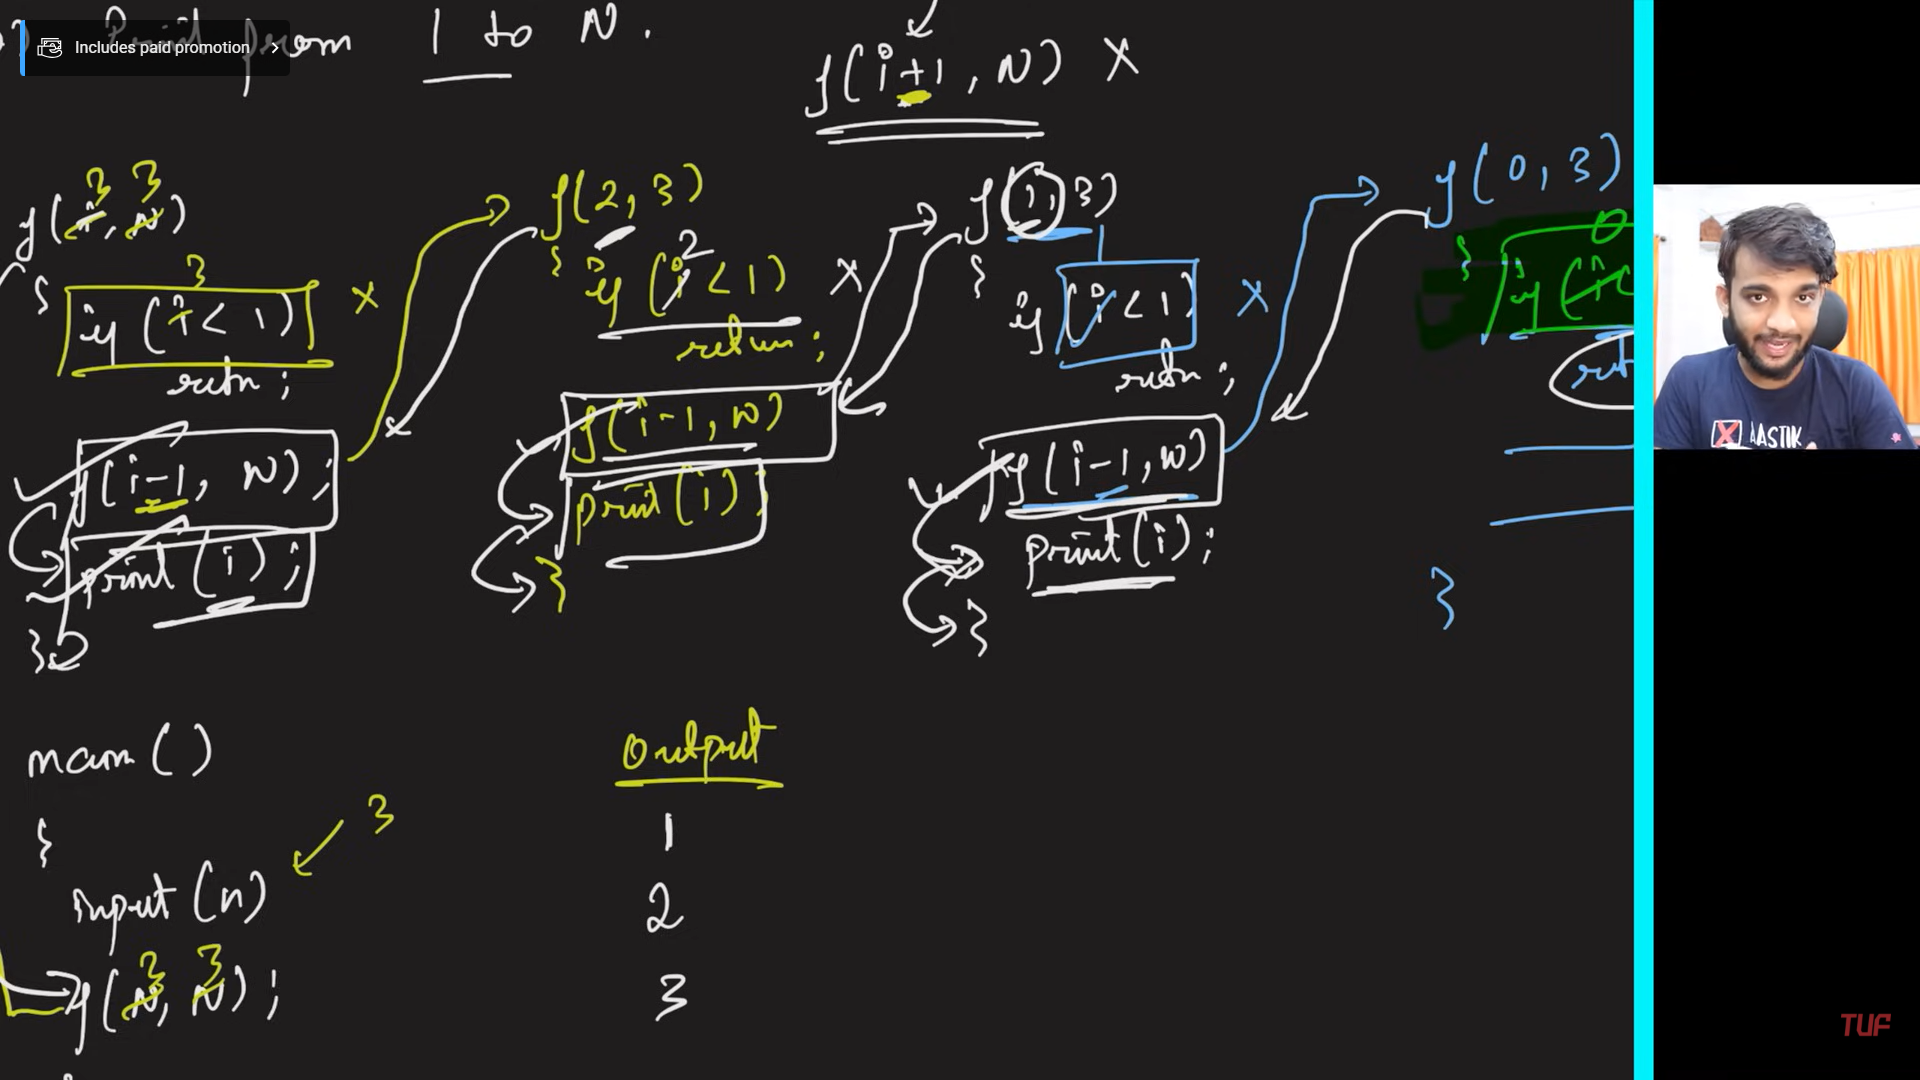 Includes paid promotion
Print from 1 to N.
f(i+1, N) X
f(i, N)
3 3
{
3
if (i < 1) X
return;
f(i-1, N);
print(i);
}
f(2, 3)
{
2
if (i < 1) X
return;
f(i-1, N)
print(i);
}
f(1, 3)
{
if (i < 1) X
return;
f(i-1, N)
print(i);
}
f(0, 3)
{
0
if (i <
}
main()
{
input(n)
3
f(N, N);
3 3
Output
1
2
3
AASTIK
TUF